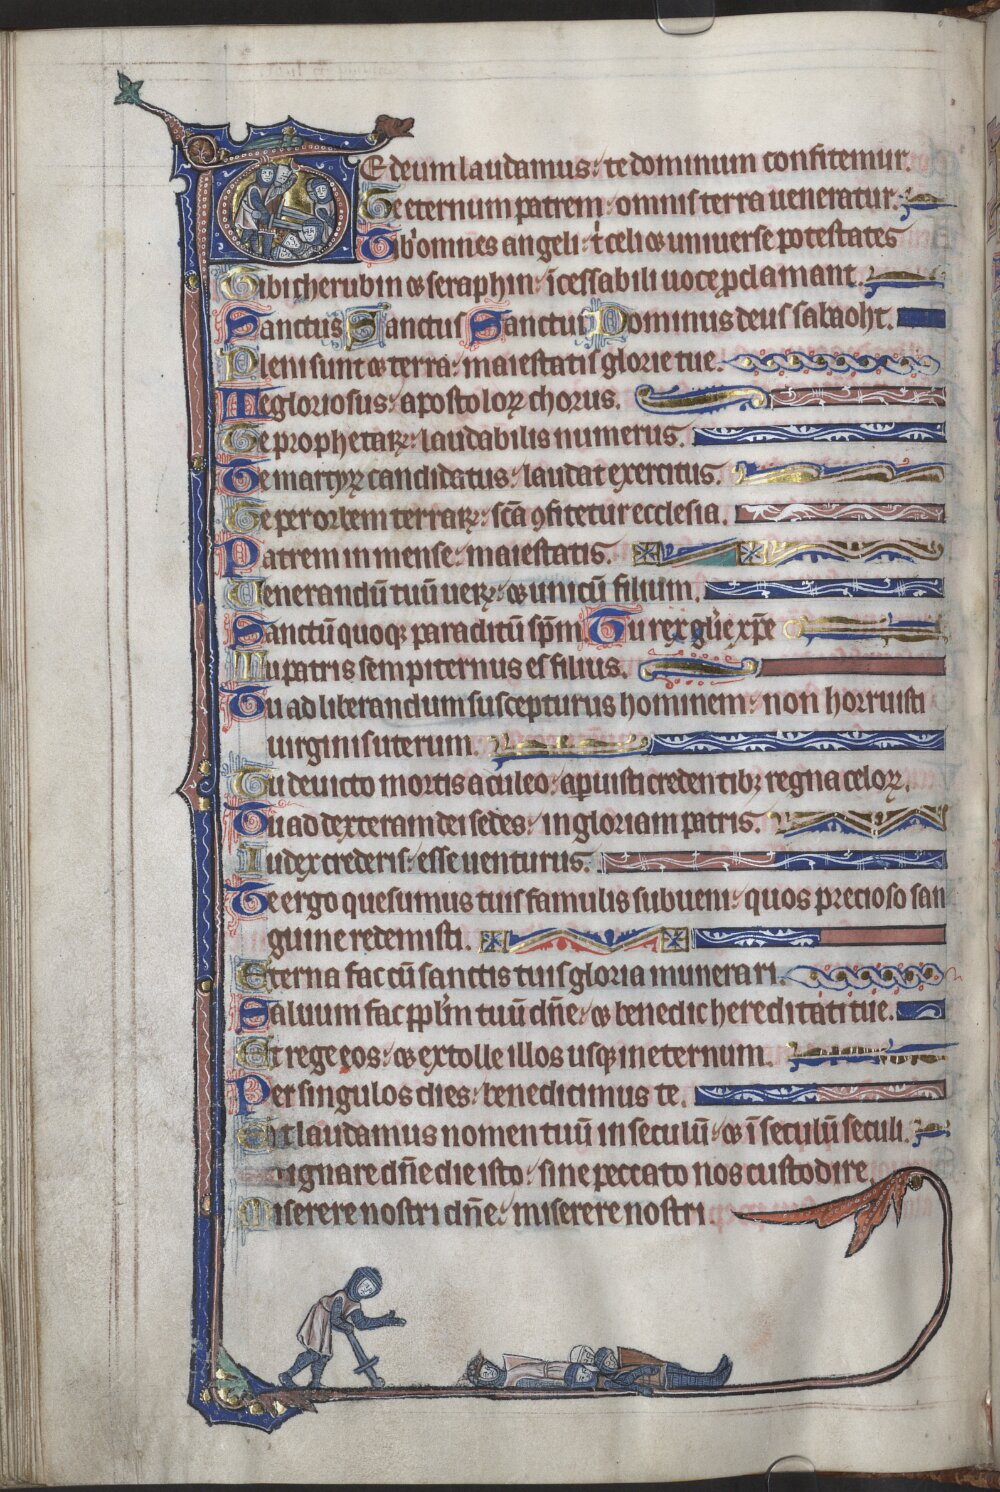 Te deum laudamus: te dominum confitemur.
Te eternum patrem: omnis terra ueneratur.
Tib' omnes angeli: t' celi ⁊ uniuerse potestates
Tibi cherubin ⁊ seraphin: īcessabili uoce ꝓclamant.
Sanctus Sanctus Sanctus Dominus deus sabaoht.
Pleni sunt ⁊ terra: maiestatis glorie tue.
Te gloriosus: apostoloꝝ chorus.
Te prophetaꝝ: laudabilis numerus.
Te martyꝝ candidatus: laudat exercitus.
Te per orbem terraꝝ: sc̄a ꝯfitetur ecclesia.
Patrem inmense: maiestatis.
Uenerandū tuū ueꝝ: ⁊ unicū filium.
Sanctū quoqꝫ paraclitū sp̄m Tu rex gl'ie xp̄e
Tu patris sempiternus es filius.
Tu ad liberandum suscepturus hominem: non horruisti
uirginis uterum.
Tu deuicto mortis aculeo: apuisti credentibꝫ regna celoꝝ.
Tu ad dexteram dei sedes: in gloriam patris.
Iudex crederis: esse uenturus.
Te ergo quesumus tuis famulis subueni: quos precioso san
guine redemisti.
Eterna fac cū sanctis tuis gloria munerari.
Saluum fac pp̄lm tuū dn̄e: ⁊ benedic hereditati tue.
Et rege eos: ⁊ extolle illos usqꝫ in eternum.
Per singulos dies: benedicimus te.
Et laudamus nomen tuū in seculū: ⁊ ī seculū seculi.
Dignare dn̄e die isto: sine peccato nos custodire.
Miserere nostri dn̄e: miserere nostri.